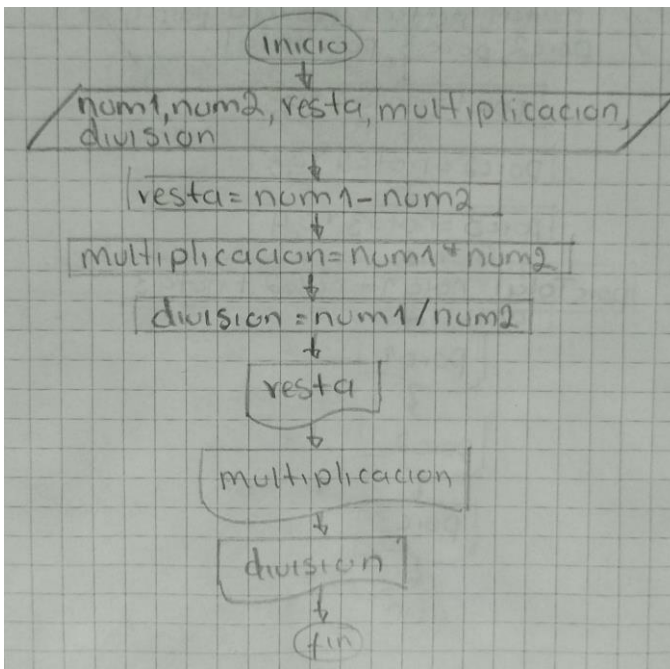 inicio
num1, num2, resta, multiplicacion,
division
resta = num1 - num2
multiplicacion = num1 * num2
division = num1 / num2
resta
multiplicacion
division
fin